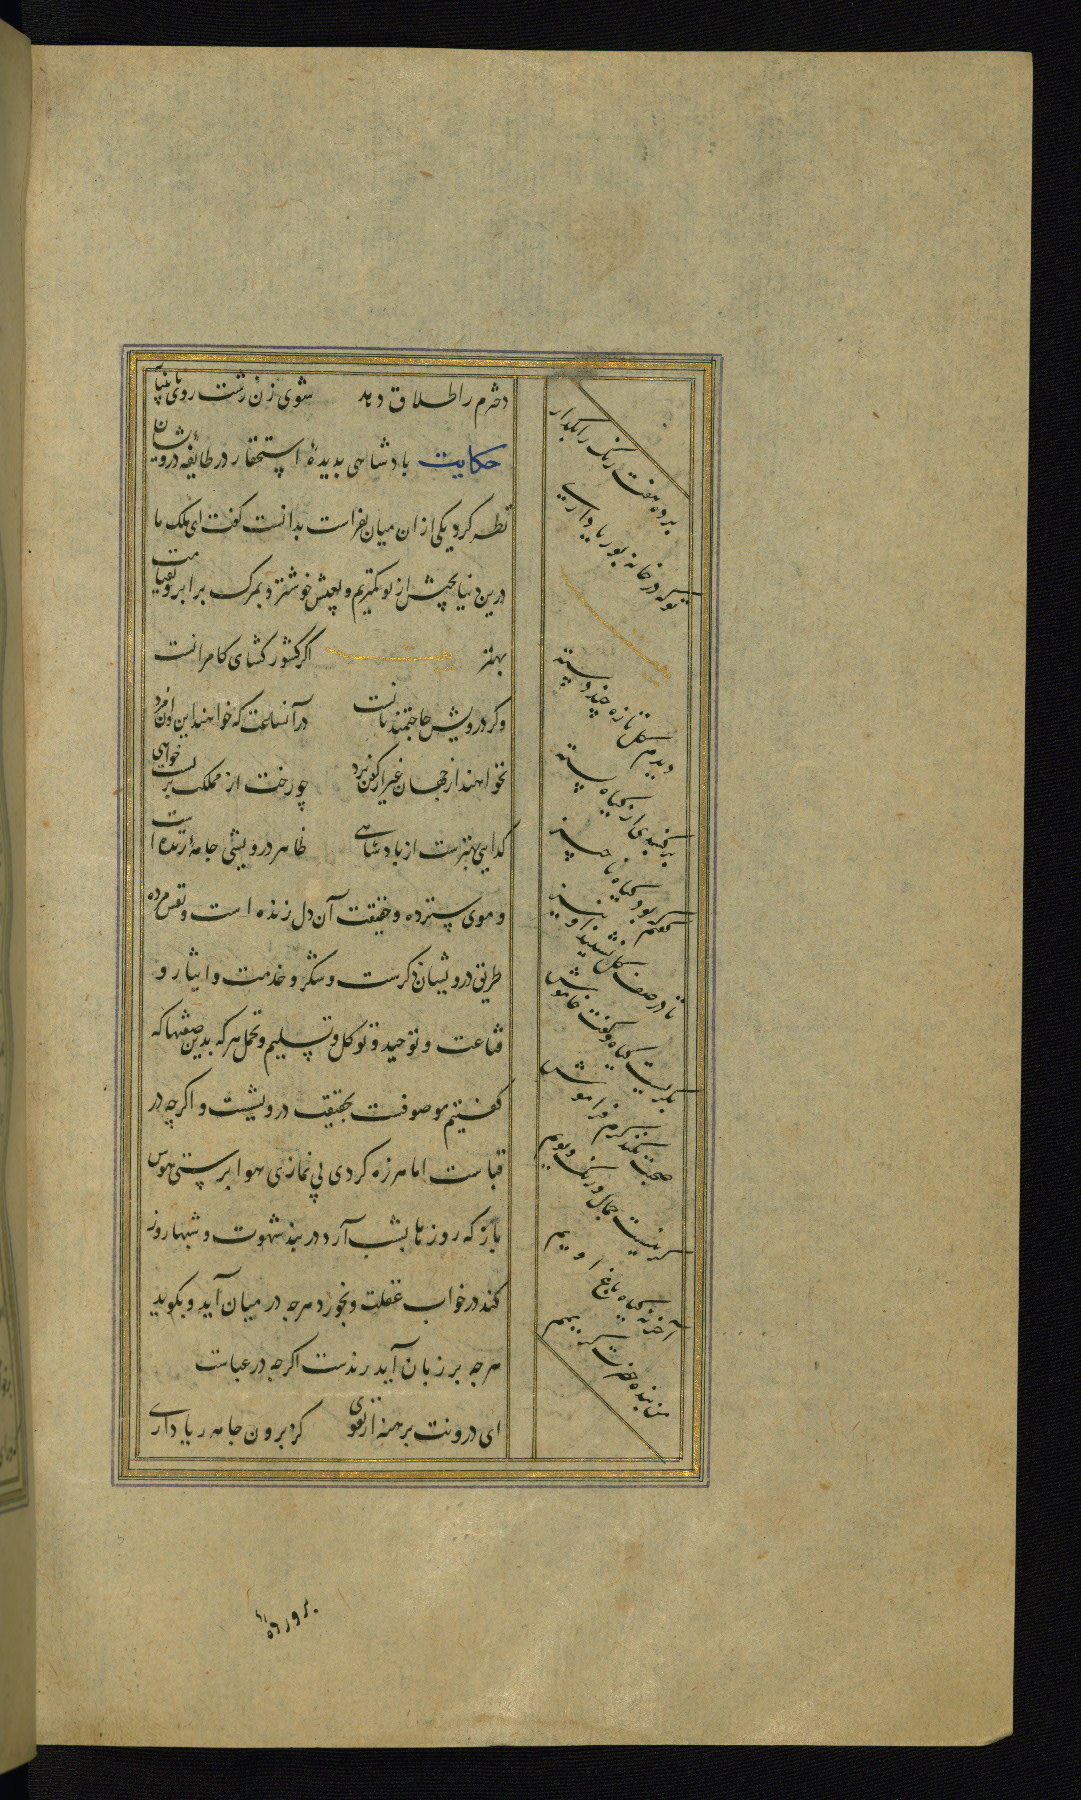 دخترم را طلاق دهد شوی زن زشت روی نابینا
حکایت پادشاهی بدیدهٔ استحقار در طائفهٔ درویشان
نظر کرد یکی از ان میان بفراست بدانست گفت ای ملک ما
درین دنیا بجیش از تو کمتریم و بعیش خوشتر و بمرگ برابر و بقیامت
بهتر اگر کشور کشای کامرانست
وگر درویش حاجتمند نانست در آنساعت که خواهند این و آن مرد
نخواهند از جهان غیر از کفن برد چو رخت از مملکت بربست خواهی
گدایی بهترست از پادشاهی ظاهر درویشی جامهٔ ژنده است
و موی سترده و حقیقت آن دل زنده است و نفس مرده
طریق درویشان ذکرست و شکر و خدمت و ایثار و
قناعت و توحید و توکل و تسلیم و تحمل هر که بدین صفتها که
گفتیم موصوفست بحقیقت درویشست و اگرچه در
قباست اما هرزه گردی بی نمازی هوا پرستی هوس
باز که روزها بشب آرد در بند شهوت و شبها روز
کند در خواب غفلت و بخورد هرچه در میان آید و بگوید
هرچه بر زبان آید رندست اگرچه در عباست
ای درونت برهنه از تقوی کز برون جامه ریا داری
پرده هفت رنگ را بگذار
تو که در خانه بوریا داری
دیدم گل تازه چند دسته
بر گنبدی از گیاه بسته
گفتم چه بود گیاه ناچیز
تا در صف گل نشیند او نیز
بگریست گیاه و گفت خاموش
صحبت نکند کرم فراموش
گر نیست جمال و رنگ و بویم
آخر نه گیاه باغ اویم
من بنده حضرت کریمم
پرورده